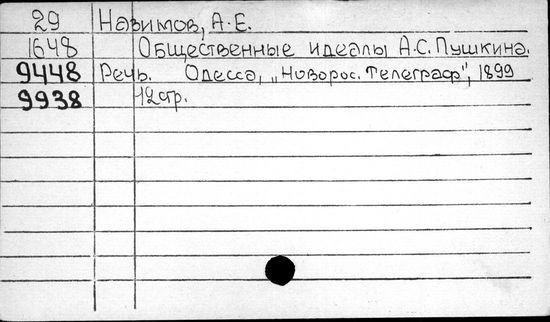 29 Назимов, А. Е.
1648 Общественные идеалы А.С. Пушкина.
9448 Речь. Одесса, „Новорос. Телеграф", 1899
9938 12 стр.